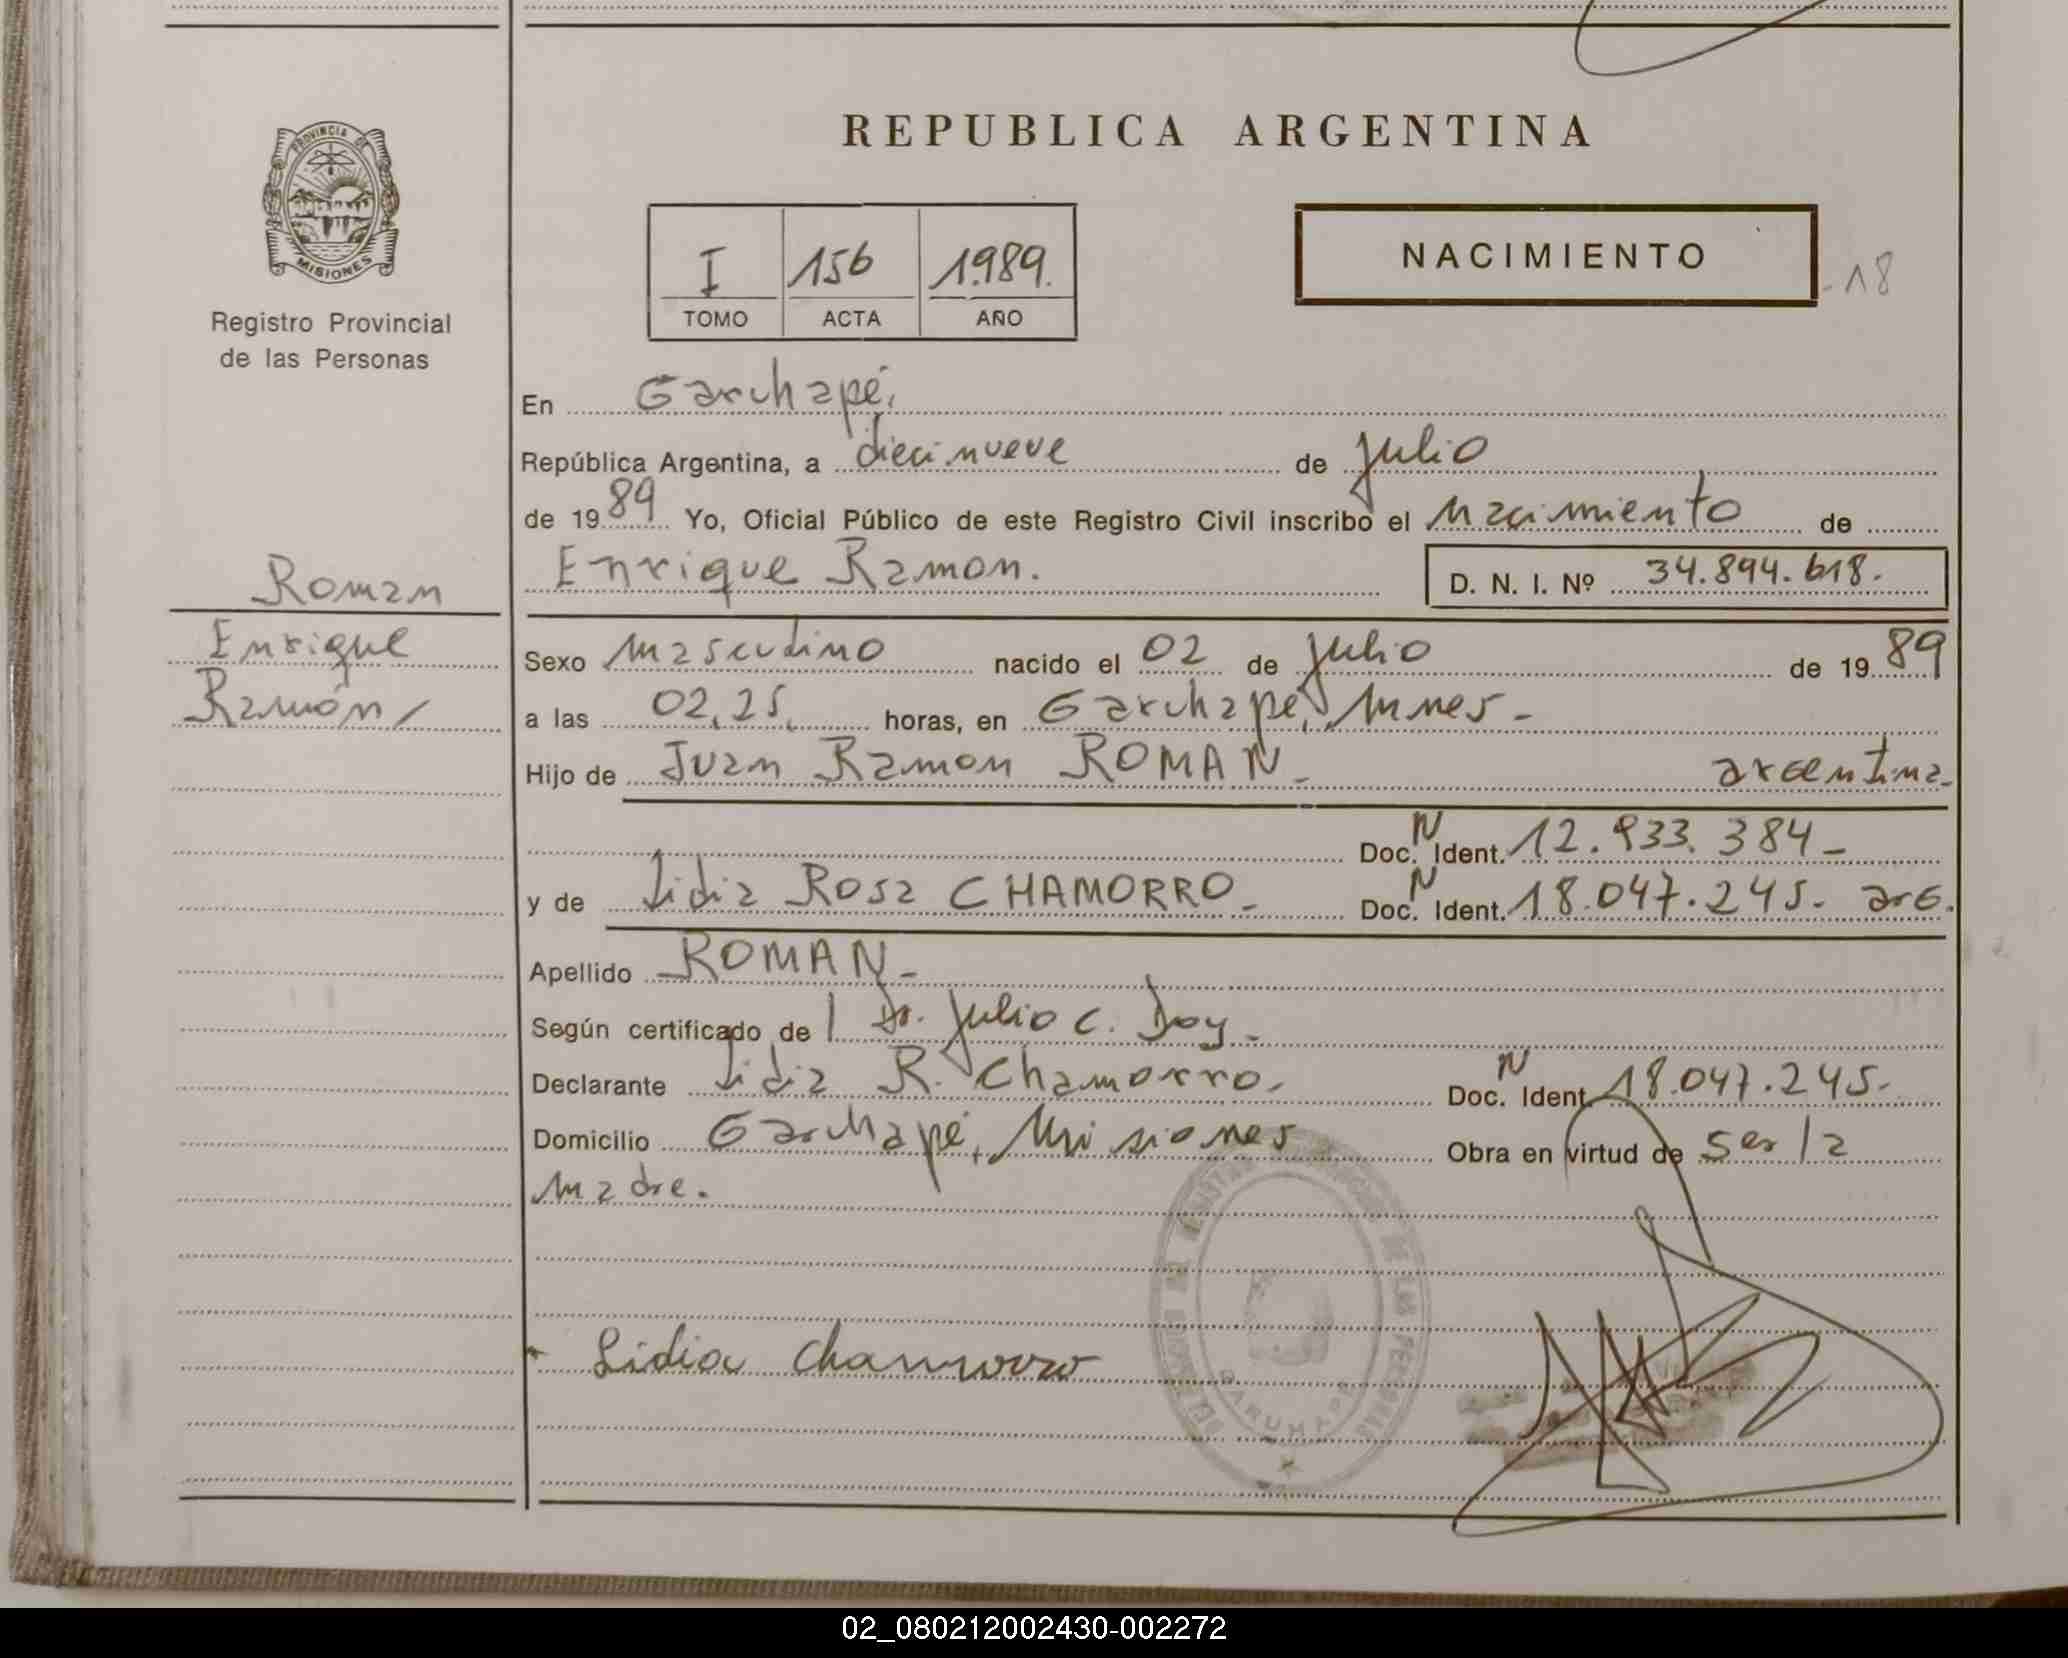 REPUBLICA ARGENTINA
PROVINCIA DE
MISIONES
Registro Provincial
de las Personas
I 156 1.989.
TOMO ACTA AÑO
NACIMIENTO
18
En Garuhapé,
República Argentina, a diecinueve de julio
de 1989 Yo, Oficial Público de este Registro Civil inscribo el nacimiento de
Enrique Ramon. D. N. I. Nº 34.894.618.
Roman
Enrique
Ramón/
Sexo masculino nacido el 02 de julio de 1989
a las 02,25, horas, en Garuhapé, Mnes-
Hijo de Juan Ramon ROMAN- argentina-
Doc. N Ident. 12.933.384-
y de Lidia Rosa CHAMORRO- Doc. N Ident. 18.047.245. arG.
Apellido ROMAN-
Según certificado de Dr. Julio C. Doy-
Declarante Lidia R. Chamorro. Doc. N Ident. 18.047.245.
Domicilio Garuhapé, Misiones Obra en virtud de ser la
madre.
Lidia Chamorro
GARUHAPE
02_080212002430-002272